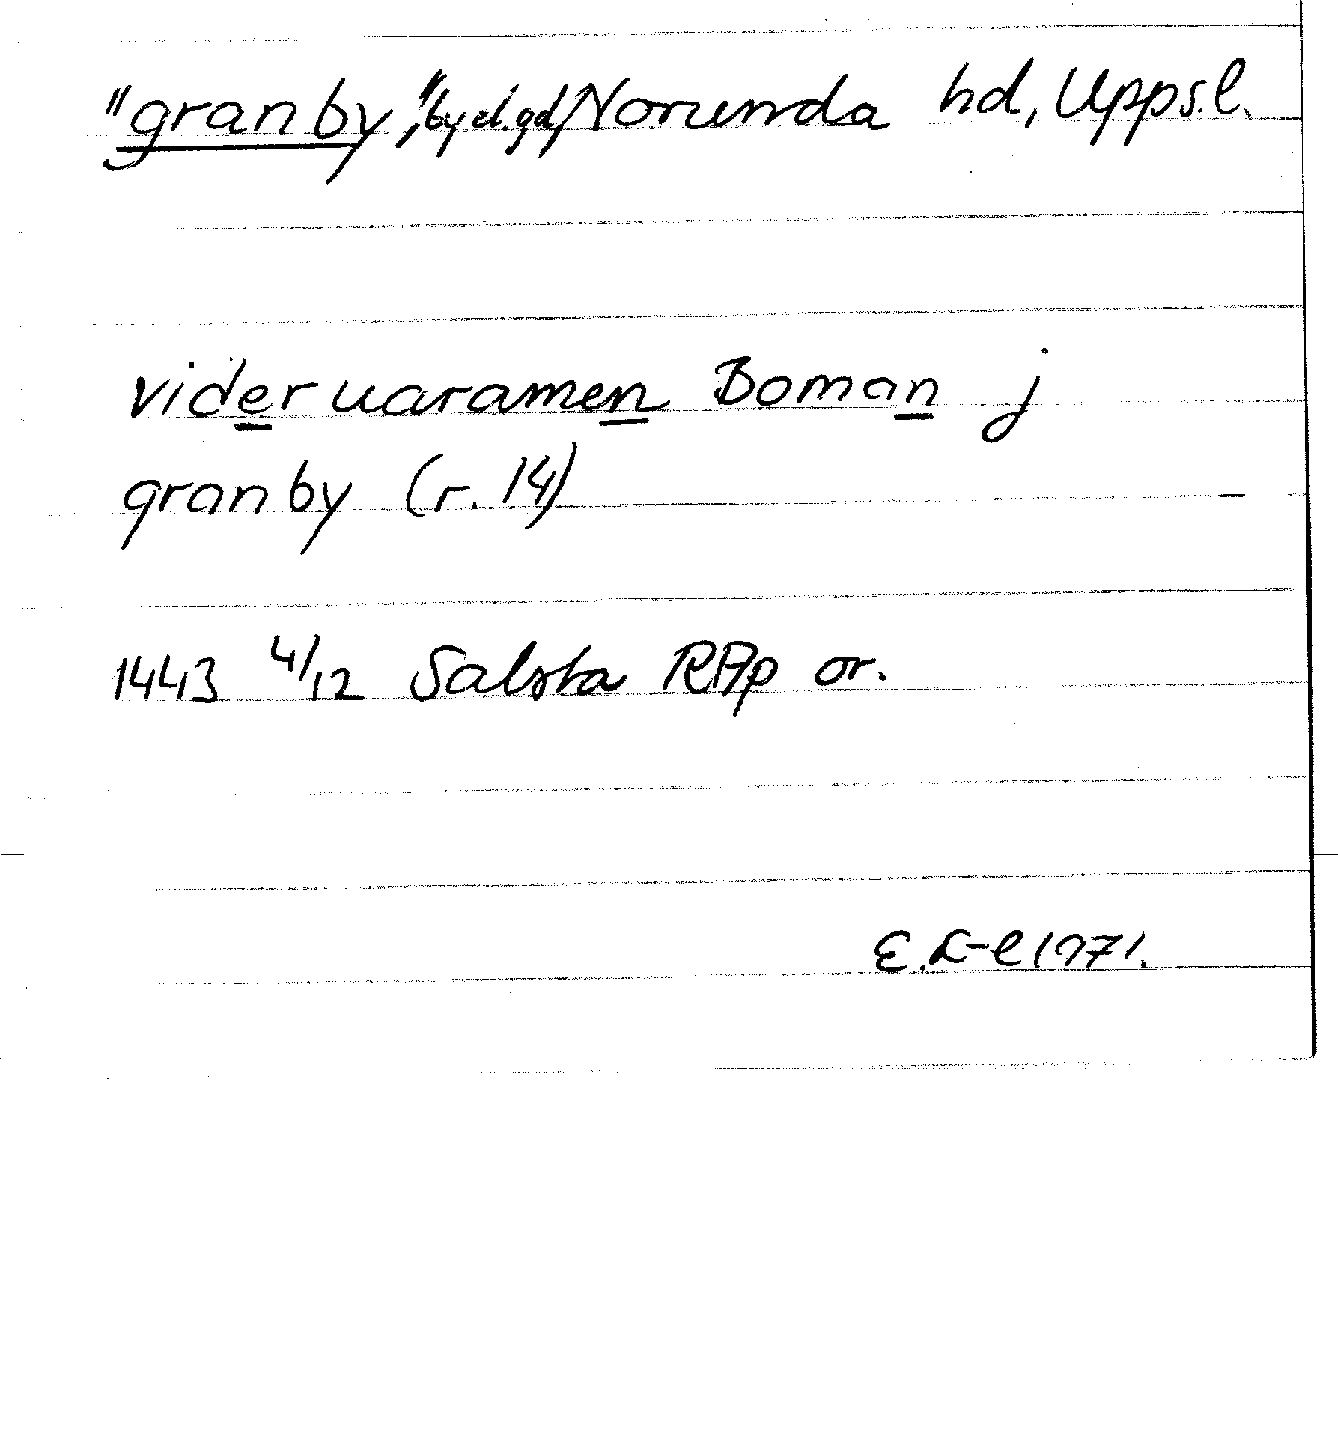 "granby", by el. gd, Norunda hd, Upps.l.
vider uaramen Boman j
granby (r. 14)
1443 4/12 Salsta RAp or.
E.L-l 1971.